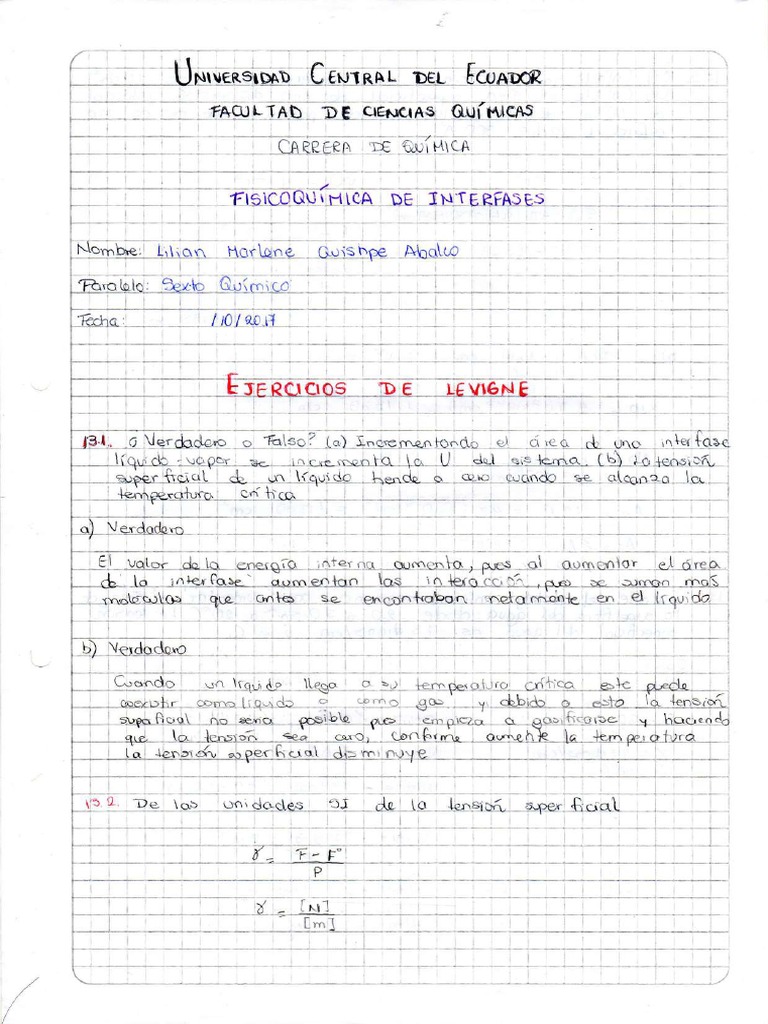 UNIVERSIDAD CENTRAL DEL ECUADOR
FACULTAD DE CIENCIAS QUÍMICAS
CARRERA DE QUÍMICA
FISICOQUÍMICA DE INTERFASES
Nombre: Lilian Marlene Quishpe Abalco
Paralelo: Sexto Químico
Fecha: /10/2017
EJERCICIOS DE LEVIGNE
13.1. ó Verdadero o Falso? (a) Incrementando el área de una interfase
líquido-vapor se incrementa la U del sistema. (b) La tensión
superficial de un líquido tiende a cero cuando se alcanza la
temperatura crítica
a) Verdadero
El valor de la energía interna aumenta, pues al aumentar el área
de la interfase aumentan las interacción, pues se suman mas
moléculas que antes se encontraban netamente en el líquido
b) Verdadero
Cuando un líquido llega a su temperatura crítica este puede
coexistir como líquido o como gas y debido a esto la tensión
supeficial no seria posible pues empieza a gasificarse y haciendo
que la tensión sea cero, conforme aumente la temperatura
la tensión superficial disminuye
13.2. De las unidades SI de la tensión superficial
γ = F - F° / P
γ = [N] / [m]